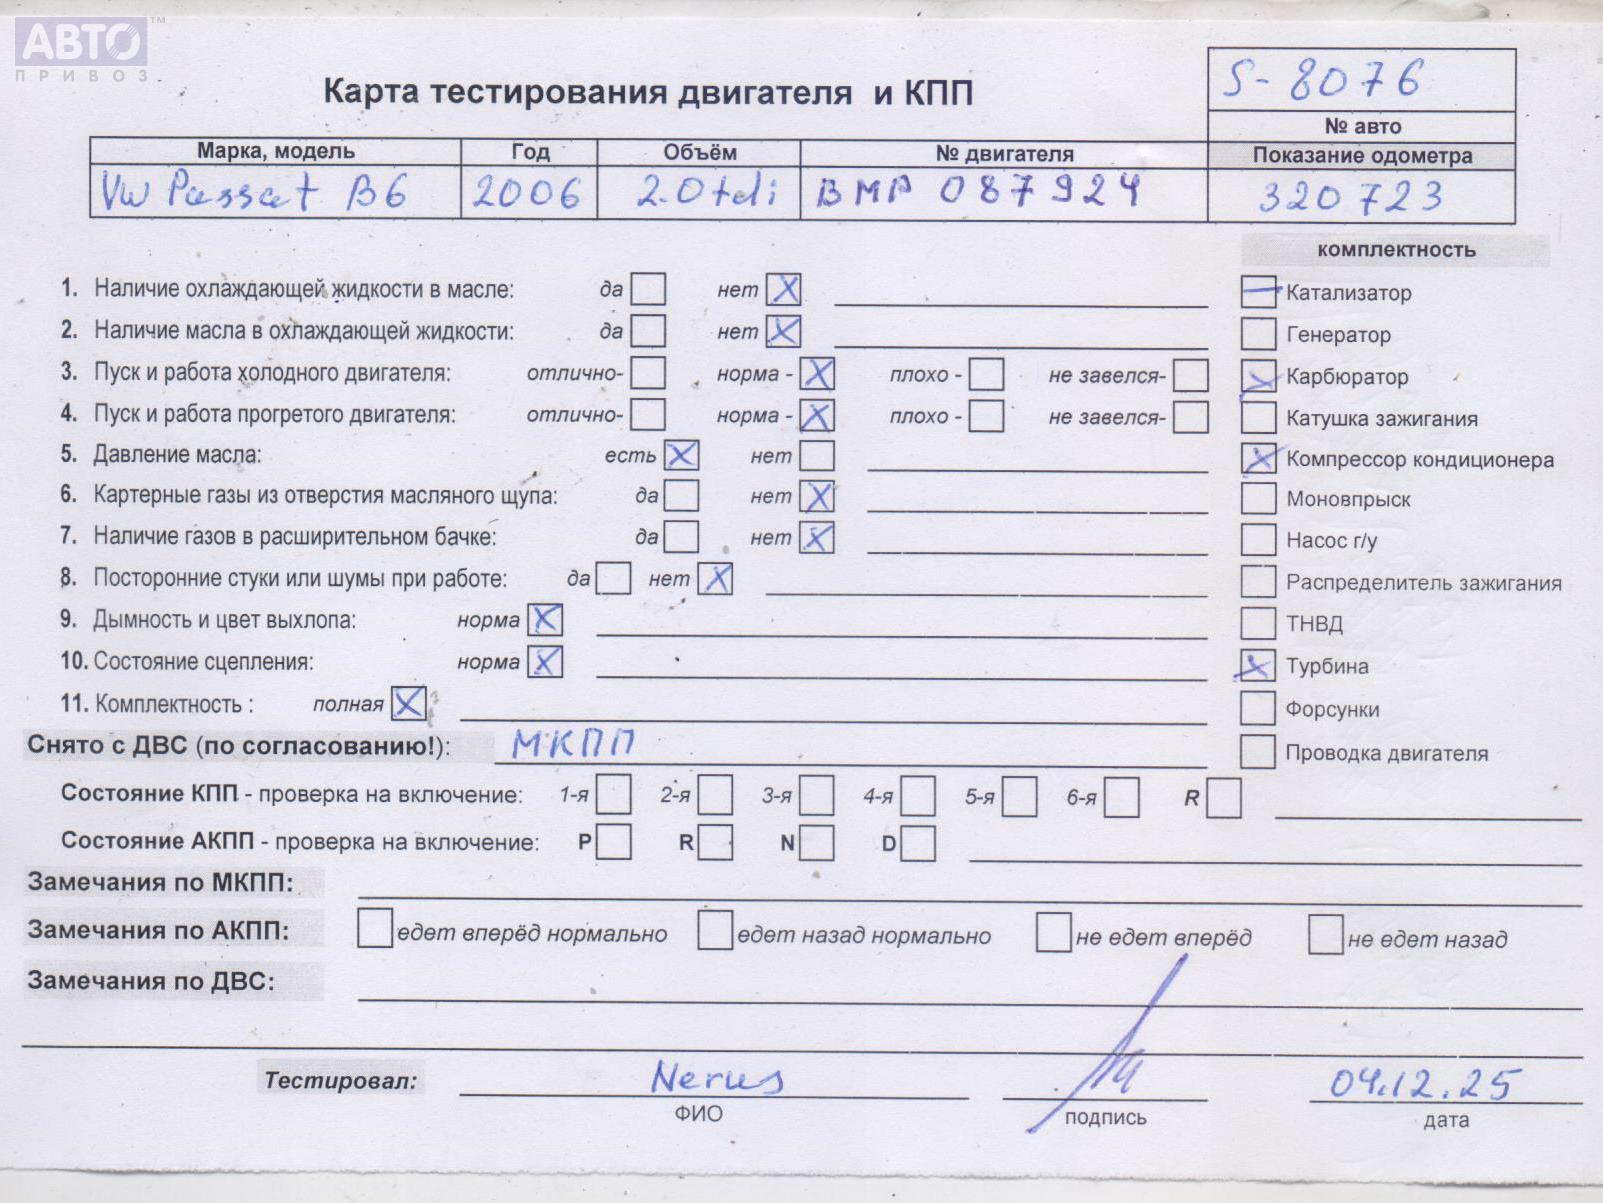 АВТО™
ПРИВОЗ
Карта тестирования двигателя и КПП
S-8076
№ авто
Марка, модель Год Объём № двигателя Показание одометра
VW Passat B6 2006 2.0 tdi BMP 087924 320723
комплектность
1. Наличие охлаждающей жидкости в масле: да нет X
Катализатор
2. Наличие масла в охлаждающей жидкости: да нет X
Генератор
3. Пуск и работа холодного двигателя: отлично- норма - X плохо - не завелся-
X Карбюратор
4. Пуск и работа прогретого двигателя: отлично- норма - X плохо - не завелся-
Катушка зажигания
5. Давление масла: есть X нет
X Компрессор кондиционера
6. Картерные газы из отверстия масляного щупа: да нет X
Моновпрыск
7. Наличие газов в расширительном бачке: да нет X
Насос г/у
8. Посторонние стуки или шумы при работе: да нет X
Распределитель зажигания
9. Дымность и цвет выхлопа: норма X
ТНВД
10. Состояние сцепления: норма X
X Турбина
11. Комплектность : полная X
Форсунки
Снято с ДВС (по согласованию!): МКПП
Проводка двигателя
Состояние КПП - проверка на включение: 1-я 2-я 3-я 4-я 5-я 6-я R
Состояние АКПП - проверка на включение: P R N D
Замечания по МКПП:
Замечания по АКПП: едет вперёд нормально едет назад нормально не едет вперёд не едет назад
Замечания по ДВС:
Тестировал: Nerus 04.12.25
ФИО подпись дата